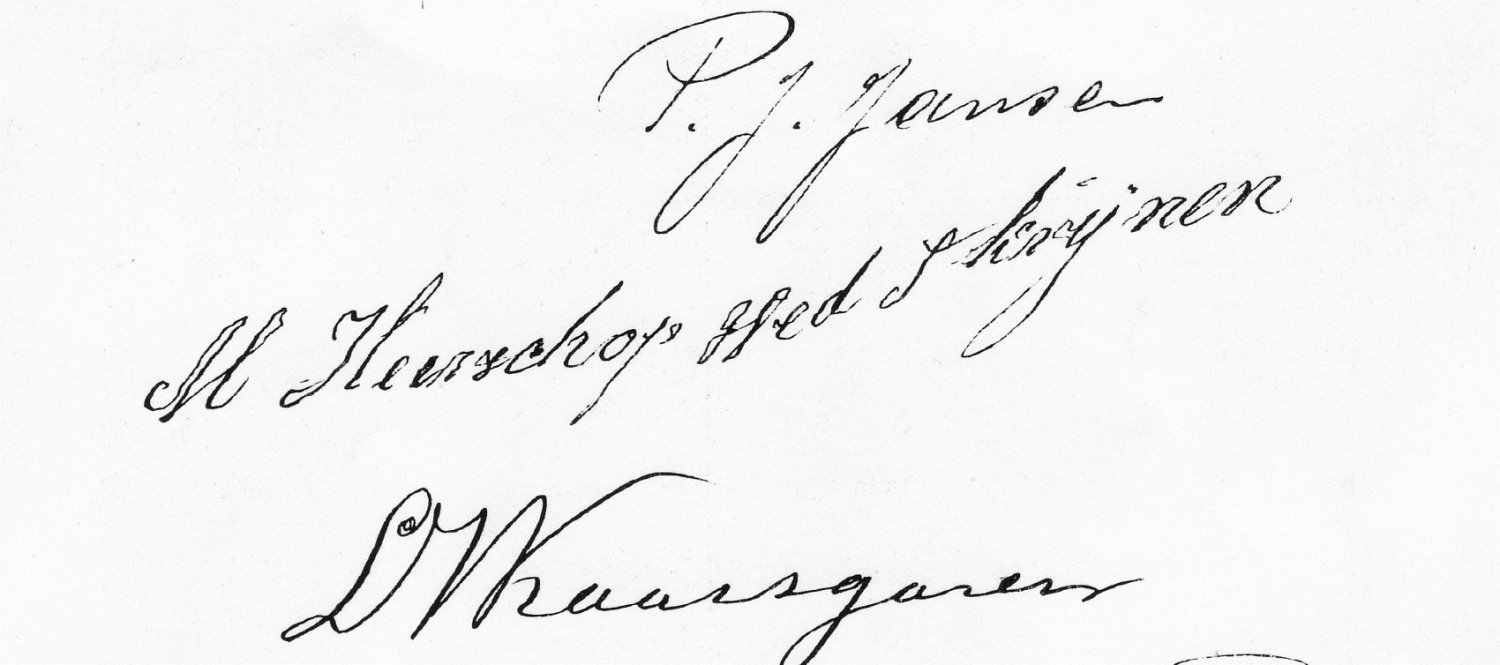 P. J. Jansen
M Heerschop Wed S krijnen
L Kaarsgaren